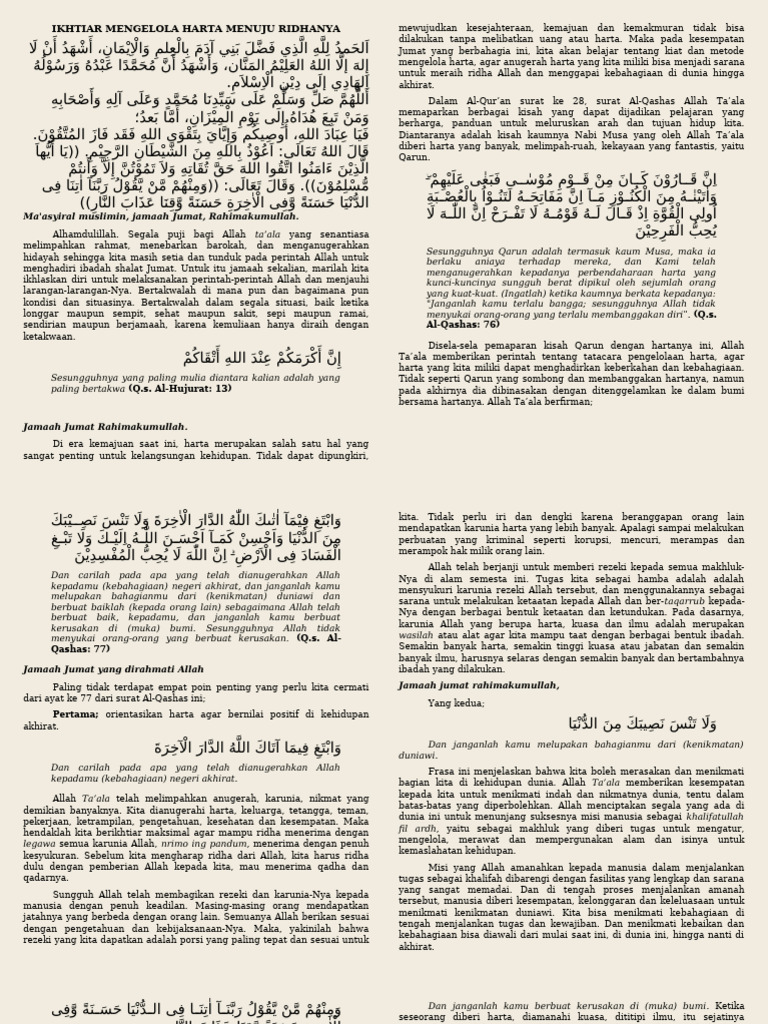 IKHTIAR MENGELOLA HARTA MENUJU RIDHANYA
اَلحَمدُ لِلَّهِ الَّذِي فَضَّلَ بَنِي آدَمَ بِالْعِلمِ وَالْاِيْمَانِ، أَشْهَدُ أَنْ لَا
إِلهَ إِلَّا اللهُ العَلِيْمُ المَنَّان، وَأَشْهَدُ أَنَّ مُحَمَّدًا عَبْدُهُ وَرَسُوْلُهُ
الهَادِي إِلَى دِيْنِ الْاِسْلَامِ.
أَللَّهُمَّ صَلِّ وَسَلِّمْ عَلَى سَيِّدِنَا مُحَمَّدٍ وَعَلَى آلِهِ وَأَصْحَابِهِ
وَمَنْ تَبِعَ هُدَاهُ إِلَى يَوْمِ الْمِيْزَانِ، أَمَّا بَعدُ؛
فَيَا عِبَادَ اللهِ، أُوصِيكُم وَإِيَّايَ بِتَقْوَى اللهِ فَقَد فَازَ المُتَّقُوْنَ.
قَالَ اللهُ تَعَالَى: اَعُوْذُ بِاللهِ مِنَ الشَّيْطَانِ الرَّجِيْمِ. ((يَا أَيُّهَا
الَّذِيْنَ ءَامَنُوا اتَّقُوا اللهَ حَقَّ تُقَاتِهِ وَلاَ تَمُوْتُنَّ إِلاَّ وَأَنتُمْ
مُّسْلِمُوْنَ)). وَقَالَ تَعَالَى: ((وَمِنْهُمْ مَّنْ يَّقُوْلُ رَبَّنَا اٰتِنَا فِى
الدُّنْيَا حَسَنَةً وَّفِى الْاٰخِرَةِ حَسَنَةً وَّقِنَا عَذَابَ النَّارِ))
Ma'asyiral muslimin, jamaah Jumat, Rahimakumullah.
Alhamdulillah. Segala puji bagi Allah ta'ala yang senantiasa
melimpahkan rahmat, menebarkan barokah, dan menganugerahkan
hidayah sehingga kita masih setia dan tunduk pada perintah Allah untuk
menghadiri ibadah shalat Jumat. Untuk itu jamaah sekalian, marilah kita
ikhlaskan diri untuk melaksanakan perintah-perintah Allah dan menjauhi
larangan-larangan-Nya. Bertakwalah di mana pun dan bagaimana pun
kondisi dan situasinya. Bertakwalah dalam segala situasi, baik ketika
longgar maupun sempit, sehat maupun sakit, sepi maupun ramai,
sendirian maupun berjamaah, karena kemuliaan hanya diraih dengan
ketakwaan.
إِنَّ أَكْرَمَكُمْ عِنْدَ اللهِ أَتْقَاكُمْ
Sesungguhnya yang paling mulia diantara kalian adalah yang
paling bertakwa (Q.s. Al-Hujurat: 13)
Jamaah Jumat Rahimakumullah.
Di era kemajuan saat ini, harta merupakan salah satu hal yang
sangat penting untuk kelangsungan kehidupan. Tidak dapat dipungkiri,
mewujudkan kesejahteraan, kemajuan dan kemakmuran tidak bisa
dilakukan tanpa melibatkan uang atau harta. Maka pada kesempatan
Jumat yang berbahagia ini, kita akan belajar tentang kiat dan metode
mengelola harta, agar anugerah harta yang kita miliki bisa menjadi sarana
untuk meraih ridha Allah dan menggapai kebahagiaan di dunia hingga
akhirat.
Dalam Al-Qur'an surat ke 28, surat Al-Qashas Allah Ta'ala
memaparkan berbagai kisah yang dapat dijadikan pelajaran yang
berharga, panduan untuk meluruskan arah dan tujuan hidup kita.
Diantaranya adalah kisah kaumnya Nabi Musa yang oleh Allah Ta'ala
diberi harta yang banyak, melimpah-ruah, kekayaan yang fantastis, yaitu
Qarun.
اِنَّ قَارُوْنَ كَانَ مِنْ قَوْمِ مُوْسٰى فَبَغٰى عَلَيْهِمْ ۖ
وَاٰتَيْنٰهُ مِنَ الْكُنُوْزِ مَآ اِنَّ مَفَاتِحَهٗ لَتَنُوْۤاُ بِالْعُصْبَةِ
اُولِى الْقُوَّةِ اِذْ قَالَ لَهٗ قَوْمُهٗ لَا تَفْرَحْ اِنَّ اللّٰهَ لَا
يُحِبُّ الْفَرِحِيْنَ
Sesungguhnya Qarun adalah termasuk kaum Musa, maka ia
berlaku aniaya terhadap mereka, dan Kami telah
menganugerahkan kepadanya perbendaharaan harta yang
kunci-kuncinya sungguh berat dipikul oleh sejumlah orang
yang kuat-kuat. (Ingatlah) ketika kaumnya berkata kepadanya:
"Janganlah kamu terlalu bangga; sesungguhnya Allah tidak
menyukai orang-orang yang terlalu membanggakan diri". (Q.s.
Al-Qashas: 76)
Disela-sela pemaparan kisah Qarun dengan hartanya ini, Allah
Ta'ala memberikan perintah tentang tatacara pengelolaan harta, agar
harta yang kita miliki dapat menghadirkan keberkahan dan kebahagiaan.
Tidak seperti Qarun yang sombong dan membanggakan hartanya, namun
pada akhirnya dia dibinasakan dengan ditenggelamkan ke dalam bumi
bersama hartanya. Allah Ta'ala berfirman;
وَابْتَغِ فِيْمَآ اٰتٰىكَ اللّٰهُ الدَّارَ الْاٰخِرَةَ وَلَا تَنْسَ نَصِيْبَكَ
مِنَ الدُّنْيَا وَاَحْسِنْ كَمَآ اَحْسَنَ اللّٰهُ اِلَيْكَ وَلَا تَبْغِ
الْفَسَادَ فِى الْاَرْضِ ۗ اِنَّ اللّٰهَ لَا يُحِبُّ الْمُفْسِدِيْنَ
Dan carilah pada apa yang telah dianugerahkan Allah
kepadamu (kebahagiaan) negeri akhirat, dan janganlah kamu
melupakan bahagianmu dari (kenikmatan) duniawi dan
berbuat baiklah (kepada orang lain) sebagaimana Allah telah
berbuat baik, kepadamu, dan janganlah kamu berbuat
kerusakan di (muka) bumi. Sesungguhnya Allah tidak
menyukai orang-orang yang berbuat kerusakan. (Q.s. Al-
Qashas: 77)
Jamaah Jumat yang dirahmati Allah
Paling tidak terdapat empat poin penting yang perlu kita cermati
dari ayat ke 77 dari surat Al-Qashas ini;
Pertama; orientasikan harta agar bernilai positif di kehidupan
akhirat.
وَابْتَغِ فِيمَا آتَاكَ اللَّهُ الدَّارَ الْآخِرَةَ
Dan carilah pada apa yang telah dianugerahkan Allah
kepadamu (kebahagiaan) negeri akhirat.
Allah Ta'ala telah melimpahkan anugerah, karunia, nikmat yang
demikian banyaknya. Kita dianugerahi harta, keluarga, tetangga, teman,
pekerjaan, ketrampilan, pengetahuan, kesehatan dan kesempatan. Maka
hendaklah kita berikhtiar maksimal agar mampu ridha menerima dengan
legawa semua karunia Allah, nrimo ing pandum, menerima dengan penuh
kesyukuran. Sebelum kita mengharap ridha dari Allah, kita harus ridha
dulu dengan pemberian Allah kepada kita, mau menerima qadha dan
qadarnya.
Sungguh Allah telah membagikan rezeki dan karunia-Nya kepada
manusia dengan penuh keadilan. Masing-masing orang mendapatkan
jatahnya yang berbeda dengan orang lain. Semuanya Allah berikan sesuai
dengan pengetahuan dan kebijaksanaan-Nya. Maka, yakinilah bahwa
rezeki yang kita dapatkan adalah porsi yang paling tepat dan sesuai untuk
kita. Tidak perlu iri dan dengki karena beranggapan orang lain
mendapatkan karunia harta yang lebih banyak. Apalagi sampai melakukan
perbuatan yang kriminal seperti korupsi, mencuri, merampas dan
merampok hak milik orang lain.
Allah telah berjanji untuk memberi rezeki kepada semua makhluk-
Nya di alam semesta ini. Tugas kita sebagai hamba adalah adalah
mensyukuri karunia rezeki Allah tersebut, dan menggunakannya sebagai
sarana untuk melakukan ketaatan kepada Allah dan ber-taqarrub kepada-
Nya dengan berbagai bentuk ketaatan dan ketundukan. Pada dasarnya,
karunia Allah yang berupa harta, kuasa dan ilmu adalah merupakan
wasilah atau alat agar kita mampu taat dengan berbagai bentuk ibadah.
Semakin banyak harta, semakin tinggi kuasa atau jabatan dan semakin
banyak ilmu, harusnya selaras dengan semakin banyak dan bertambahnya
ibadah yang dilakukan.
Jamaah jumat rahimakumullah,
Yang kedua;
وَلَا تَنْسَ نَصِيبَكَ مِنَ الدُّنْيَا
Dan janganlah kamu melupakan bahagianmu dari (kenikmatan)
duniawi.
Frasa ini menjelaskan bahwa kita boleh merasakan dan menikmati
bagian kita di kehidupan dunia. Allah Ta'ala memberikan kesempatan
kepada kita untuk menikmati indah dan nikmatnya dunia, tentu dalam
batas-batas yang diperbolehkan. Allah menciptakan segala yang ada di
dunia ini untuk menunjang suksesnya misi manusia sebagai khalifatullah
fil ardh, yaitu sebagai makhluk yang diberi tugas untuk mengatur,
mengelola, merawat dan mempergunakan alam dan isinya untuk
kemaslahatan kehidupan.
Misi yang Allah amanahkan kepada manusia dalam menjalankan
tugas sebagai khalifah dibarengi dengan fasilitas yang lengkap dan sarana
yang sangat memadai. Dan di tengah proses menjalankan amanah
tersebut, manusia diberi kesempatan, kelonggaran dan keleluasaan untuk
menikmati kenikmatan duniawi. Kita bisa menikmati kebahagiaan di
tengah menjalankan tugas dan kewajiban. Dan menikmati kebaikan dan
kebahagiaan bisa diawali dari mulai saat ini, di dunia ini, hingga nanti di
akhirat.
وَمِنْهُمْ مَّنْ يَّقُوْلُ رَبَّنَآ اٰتِنَا فِى الدُّنْيَا حَسَنَةً وَّفِى
Dan janganlah kamu berbuat kerusakan di (muka) bumi. Ketika
seseorang diberi harta, diamanahi kuasa, dititipi ilmu, itu sejatinya